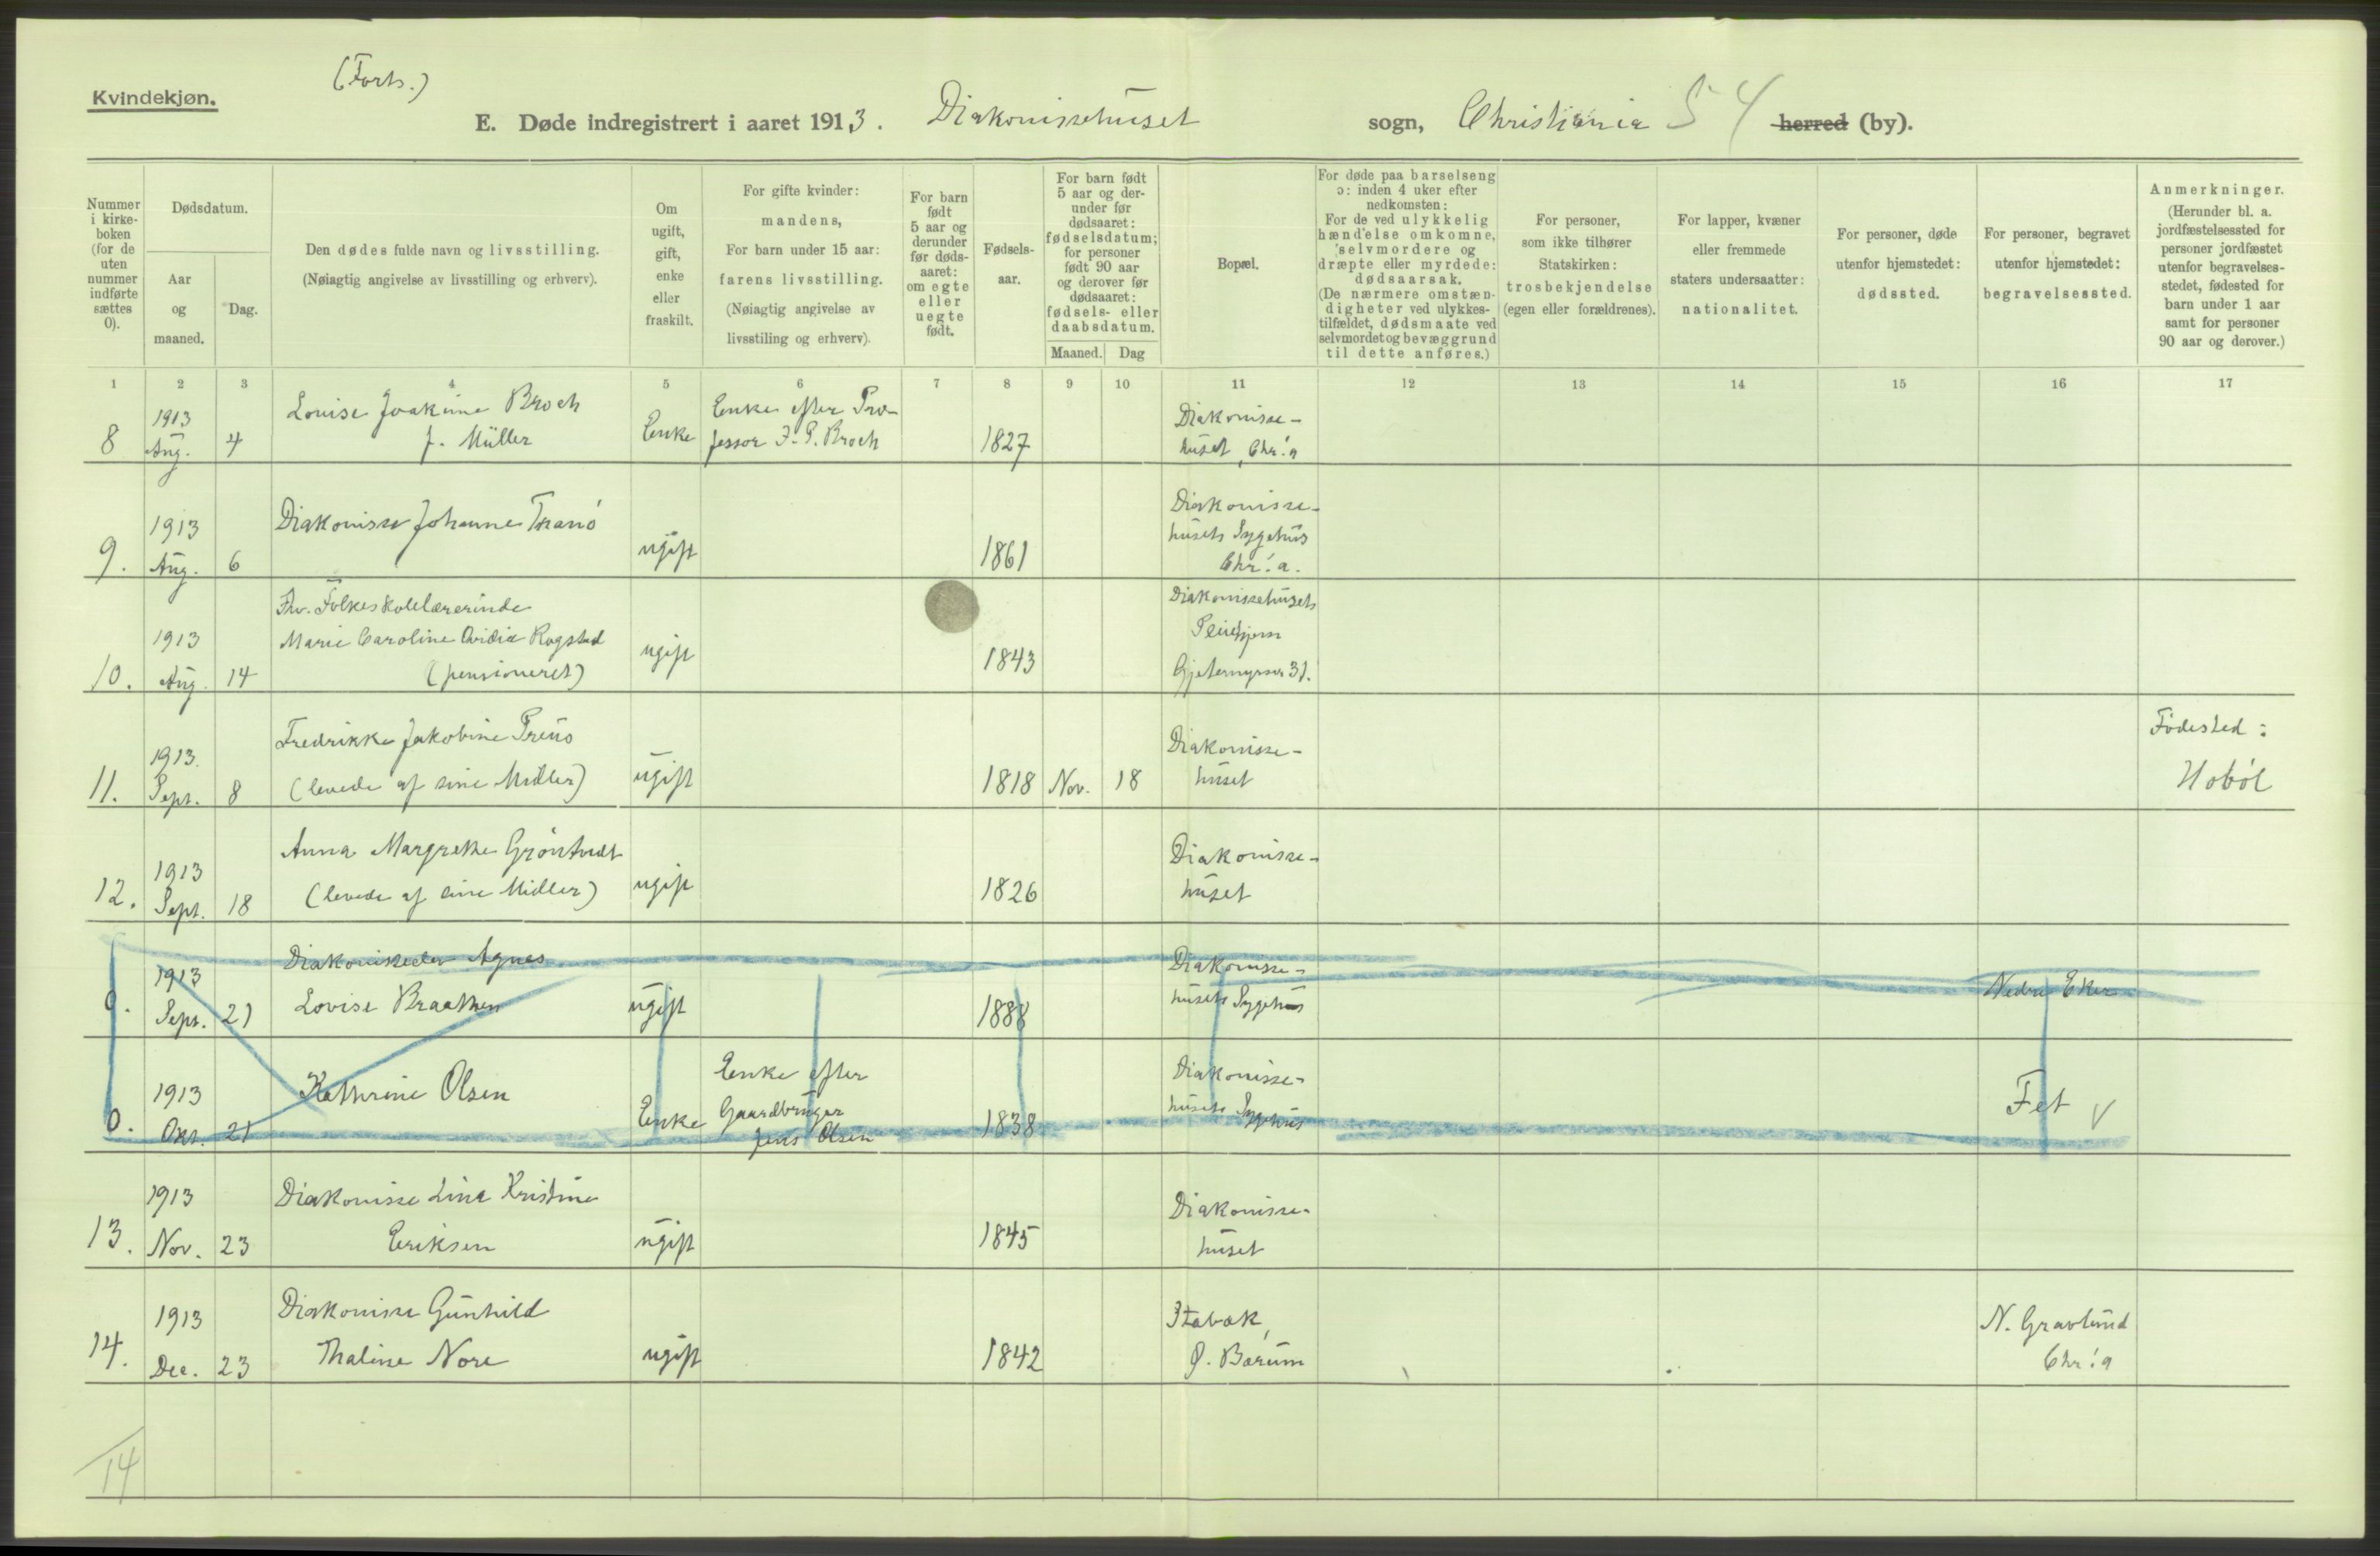 (Forts.)
Kvindekjøn.
E. Døde indregistrert i aaret 1913. Diakonissehuset sogn, Christiania 54 herred (by).
Nummer i kirke-boken (for de uten nummer indførte sættes 0).
Dødsdatum.
Aar og maaned.
Dag.
Den dødes fulde navn og livsstilling.
(Nøiagtig angivelse av livsstilling og erhverv).
Om ugift, gift, enke eller fraskilt.
For gifte kvinder:
mandens,
For barn under 15 aar:
farens livsstilling.
(Nøiagtig angivelse av
livsstiling og erhverv).
For barn født 5 aar og derunder før døds-aaret: om egte eller uegte født.
Fødsels-aar.
For barn født
5 aar og der-
under før
dødsaaret:
fødselsdatum;
for personer
født 90 aar
og derover før
dødsaaret:
fødsels- eller
daabsdatum.
Maaned. Dag
Bopæl.
For døde paa barselseng
ɔ: inden 4 uker efter
nedkomsten:
For de ved ulykkelig
hændelse omkomne,
selvmordere og
dræpte eller myrdede:
dødsaarsak.
(De nærmere omstæn-
digheter ved ulykkes-
tilfældet, dødsmaate ved
selvmordet og bevæggrund
til dette anføres.)
For personer,
som ikke tilhører
Statskirken:
trosbekjendelse
(egen eller forældrenes).
For lapper, kvæner
eller fremmede
staters undersaatter:
nationalitet.
For personer, døde
utenfor hjemstedet:
dødssted.
For personer, begravet
utenfor hjemstedet:
begravelsessted.
Anmerkninger.
(Herunder bl. a.
jordfæstelsessted for
personer jordfæstet
utenfor begravelses-
stedet, fødested for
barn under 1 aar
samt for personer
90 aar og derover.)
1 2 3 4 5 6 7 8 9 10 11 12 13 14 15 16 17
8 1913 Aug. 4 Louise Joakime Broch
f. Müller
Enke
Enke efter Pro-
fessor J. P. Broch
1827
Diakonisse-
huset, Chr.a
9. 1913 Aug. 6 Diakonisse Johanne Tranó
ugift
1861
Diakonisse-
husets Sygehus
Chr.a.
10. 1913 Aug. 14 Fhv. Folkeskolelærerinde
Marie Caroline Ovidia Rogstad
(pensioneret)
ugift
1843
Diakonissehusets
Pleiehjem
Gjetemyrsv 31.
11. 1913. Sept. 8 Fredrikke Jakobine Preus
(levede af sine Midler)
ugift
1818 Nov. 18
Diakonisse-
huset
Födested:
Hobøl
12. 1913 Sept. 18 Anna Margrethe Gröntvedt
(levede af sine Midler)
ugift
1826
Diakonisse-
huset
0. 1913 Sept. 21 Agnes
Lovise Braathen
ugift
1888
Diakonisse-
husets Sygehus
Nedre Eker
0. 1913 Okt. 21 Kathrine Olsen
Enke
Enke efter
Gaardbruger
Jens Olsen
1838
Diakonisse-
husets Sygehus
Fet V
13. 1913 Nov. 23 Diakonisse Lina Kristine
Eriksen
ugift
1845
Diakonisse-
huset
14. 1913 Dec. 23 Diakonisse Gunhild
Thaline Nore
ugift
1842
Stabæk,
Ø. Bærum
N. Gravlund
Chr.a
14